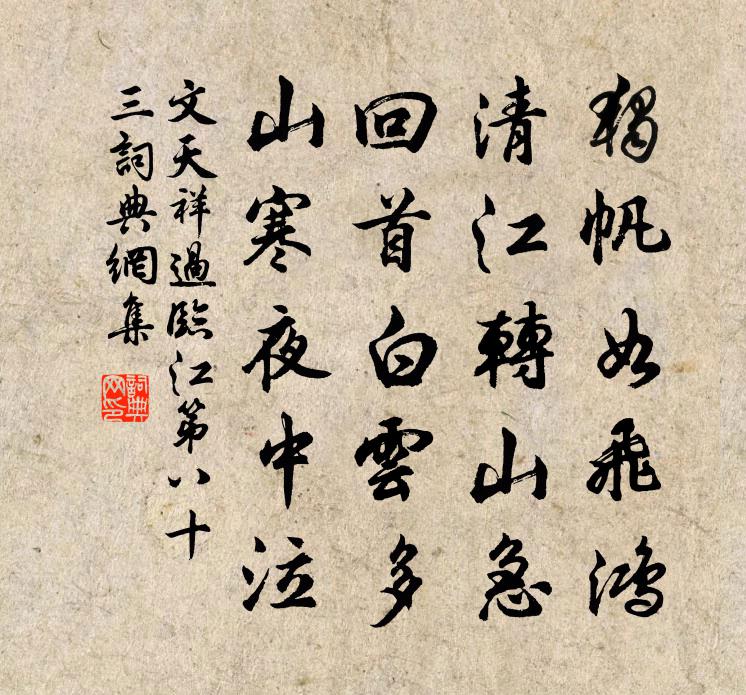 獨帆如飛鴻
清江轉山急
回首白雲多
山寒夜中泣
文天祥過臨江第八十
三詞典網集
詞典网印